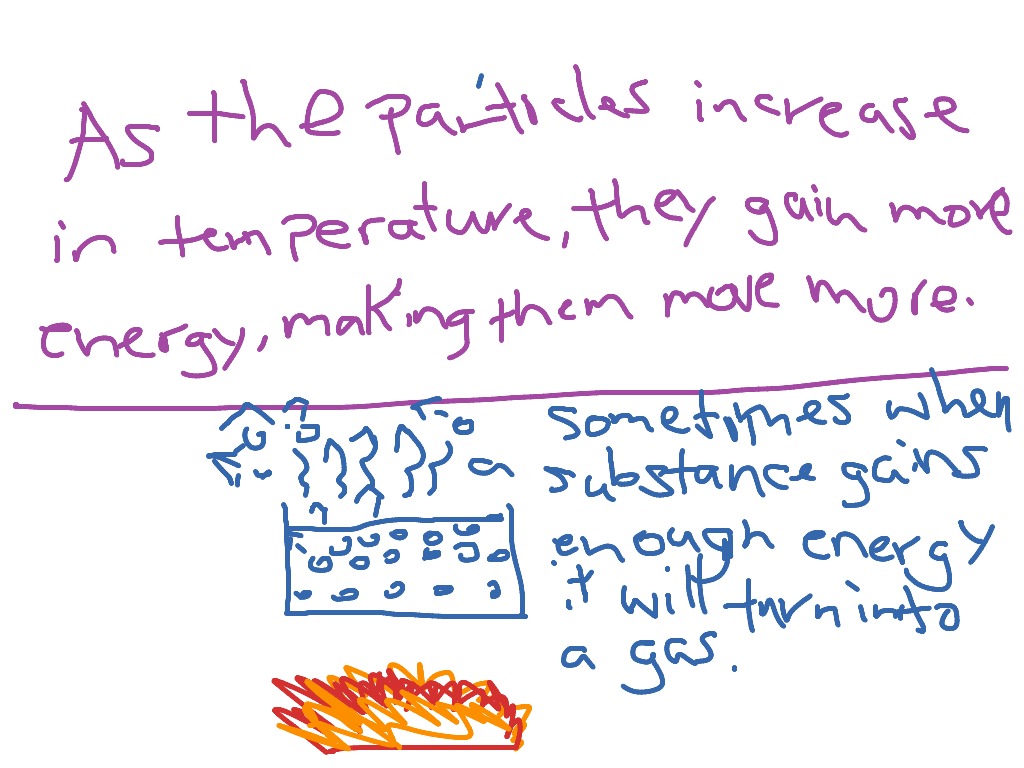 As the particles increase
in temperature, they gain more
energy, making them move more.
sometimes when
substance gains
enough energy
it will turn into
a gas.